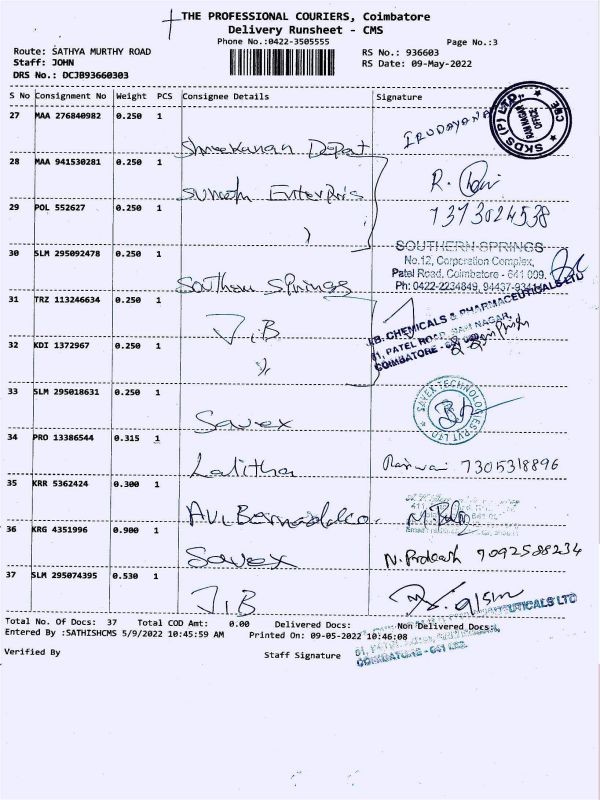 THE PROFESSIONAL COURIERS, Coimbatore
Delivery Runsheet - CMS
Phone No.:0422-3505555
Page No.:3
Route: SATHYA MURTHY ROAD
RS No.: 936603
Staff: JOHN
RS Date: 09-May-2022
DRS No.: DCJB93660303
S No Consignment No Weight PCS Consignee Details Signature
27 MAA 276840982 0.250 1
Shreekanan Depot IRUDAYANA
SKDS (P) LTD. CBE
RAM NAGAR
OFFICE
28 MAA 941530281 0.250 1
Suresh Enterpris R.
29 POL 552627 0.250 1
7373024538
30 SLM 295092478 0.250 1
Southern Springs
SOUTHERN SPRINGS
No.12, Corporation Complex,
Patel Road, Coimbatore - 641 009.
Ph: 0422-2234849, 94437-934
31 TRZ 113246634 0.250 1
J.B
J.B. CHEMICALS & PHARMACEUTICALS LTD
61, PATEL ROAD, RAM NAGAR,
COIMBATORE - 641 009
32 KDI 1372967 0.250 1
33 SLM 295018631 0.250 1
Savex
SAVEX TECHNOLOGIES PVT LTD
34 PRO 13386544 0.315 1
Lalitha 7305318896
35 KRR 5362424 0.300 1
36 KRG 4351996 0.900 1
Savex N. Prakash 7092588234
37 SLM 295074395 0.530 1
J.B
Total No. Of Docs: 37 Total COD Amt: 0.00 Delivered Docs: Non Delivered Docs:
Entered By :SATHISHCMS 5/9/2022 10:45:59 AM Printed On: 09-05-2022 10:46:08
Verified By Staff Signature